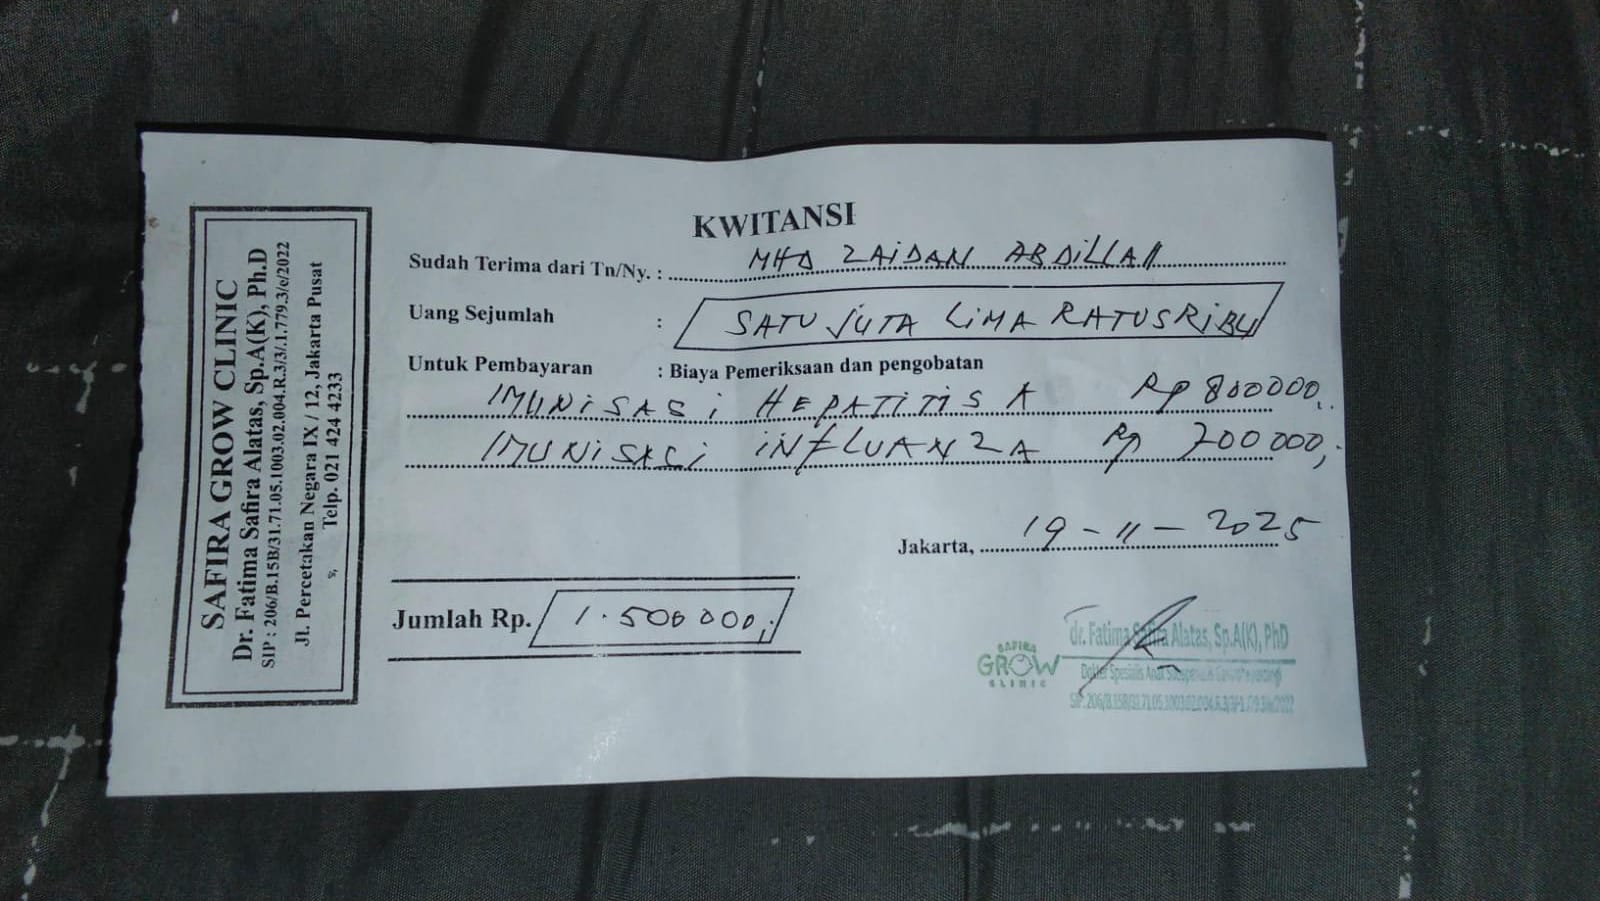 SAFIRA GROW CLINIC
Dr. Fatima Safira Alatas, Sp.A(K), Ph.D
SIP : 206/B.15B/31.71.05.1003.02.004.R.3/3/.1.779.3/e/2022
Jl. Percetakan Negara IX / 12, Jakarta Pusat
Telp. 021 424 4233
KWITANSI
Sudah Terima dari Tn/Ny. : MHD ZAIDAN ABDILLAH
Uang Sejumlah : SATU JUTA LIMA RATUS RIBU
Untuk Pembayaran : Biaya Pemeriksaan dan pengobatan
IMUNISASI HEPATITIS A Rp 800000,
IMUNISASI INFLUANZA Rp 700000,
Jakarta, 19-11-2025
Jumlah Rp. 1.500000,
SAFIRA
GROW
CLINIC
dr. Fatima Safira Alatas, Sp.A(K), PhD
Dokter Spesialis Anak